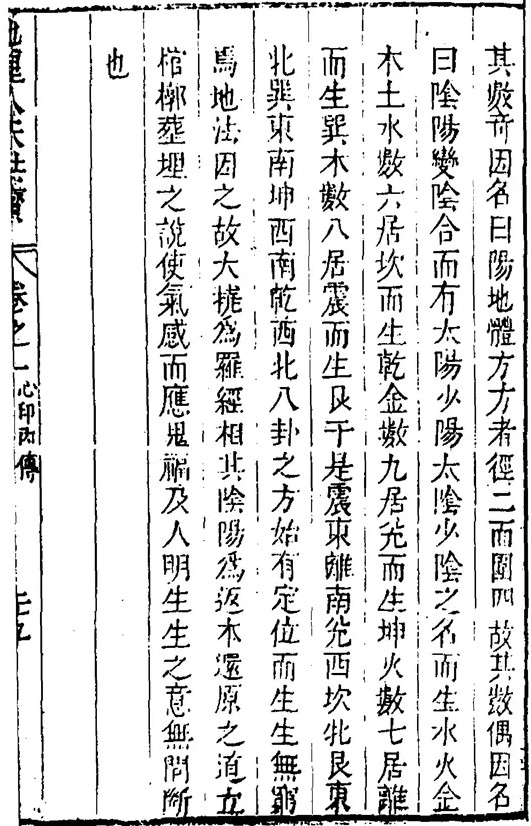 其數奇因名曰陽地體方方者徑二而圍四故其數偶因名
曰陰陽變陰合而有太陽少陽太陰少陰之名而生水火金
木土水數六居坎而生乾金數九居兊而生坤火數七居離
而生巽木數八居震而生艮于是震東離南兊西坎北艮東
北巽東南坤西南乾西北八卦之方始有定位而生生無窮
焉地法因之故大撓為羅經相其陰陽為返本還原之道立
棺槨塟埋之說使氣感而應鬼福及人明生生之意無間斷
也
卷之一 心印內傳